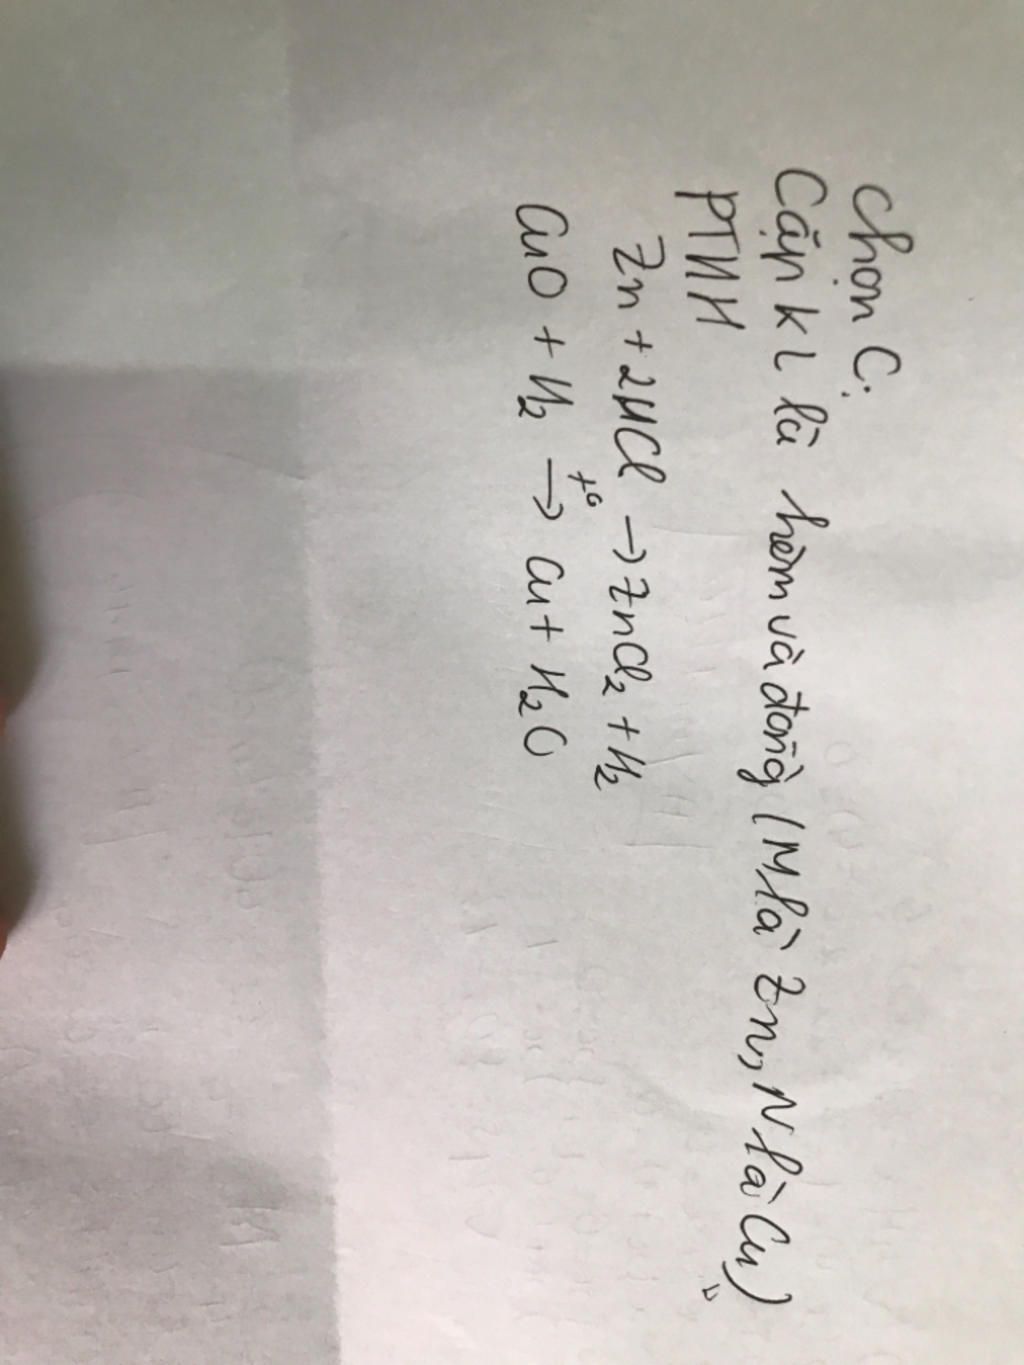 Chọn C.
Cặp KL là kẽm và đồng (M là Zn, N là Cu)
PTHH
Zn + 2HCl → ZnCl₂ + H₂
CuO + H₂ →t° Cu + H₂O